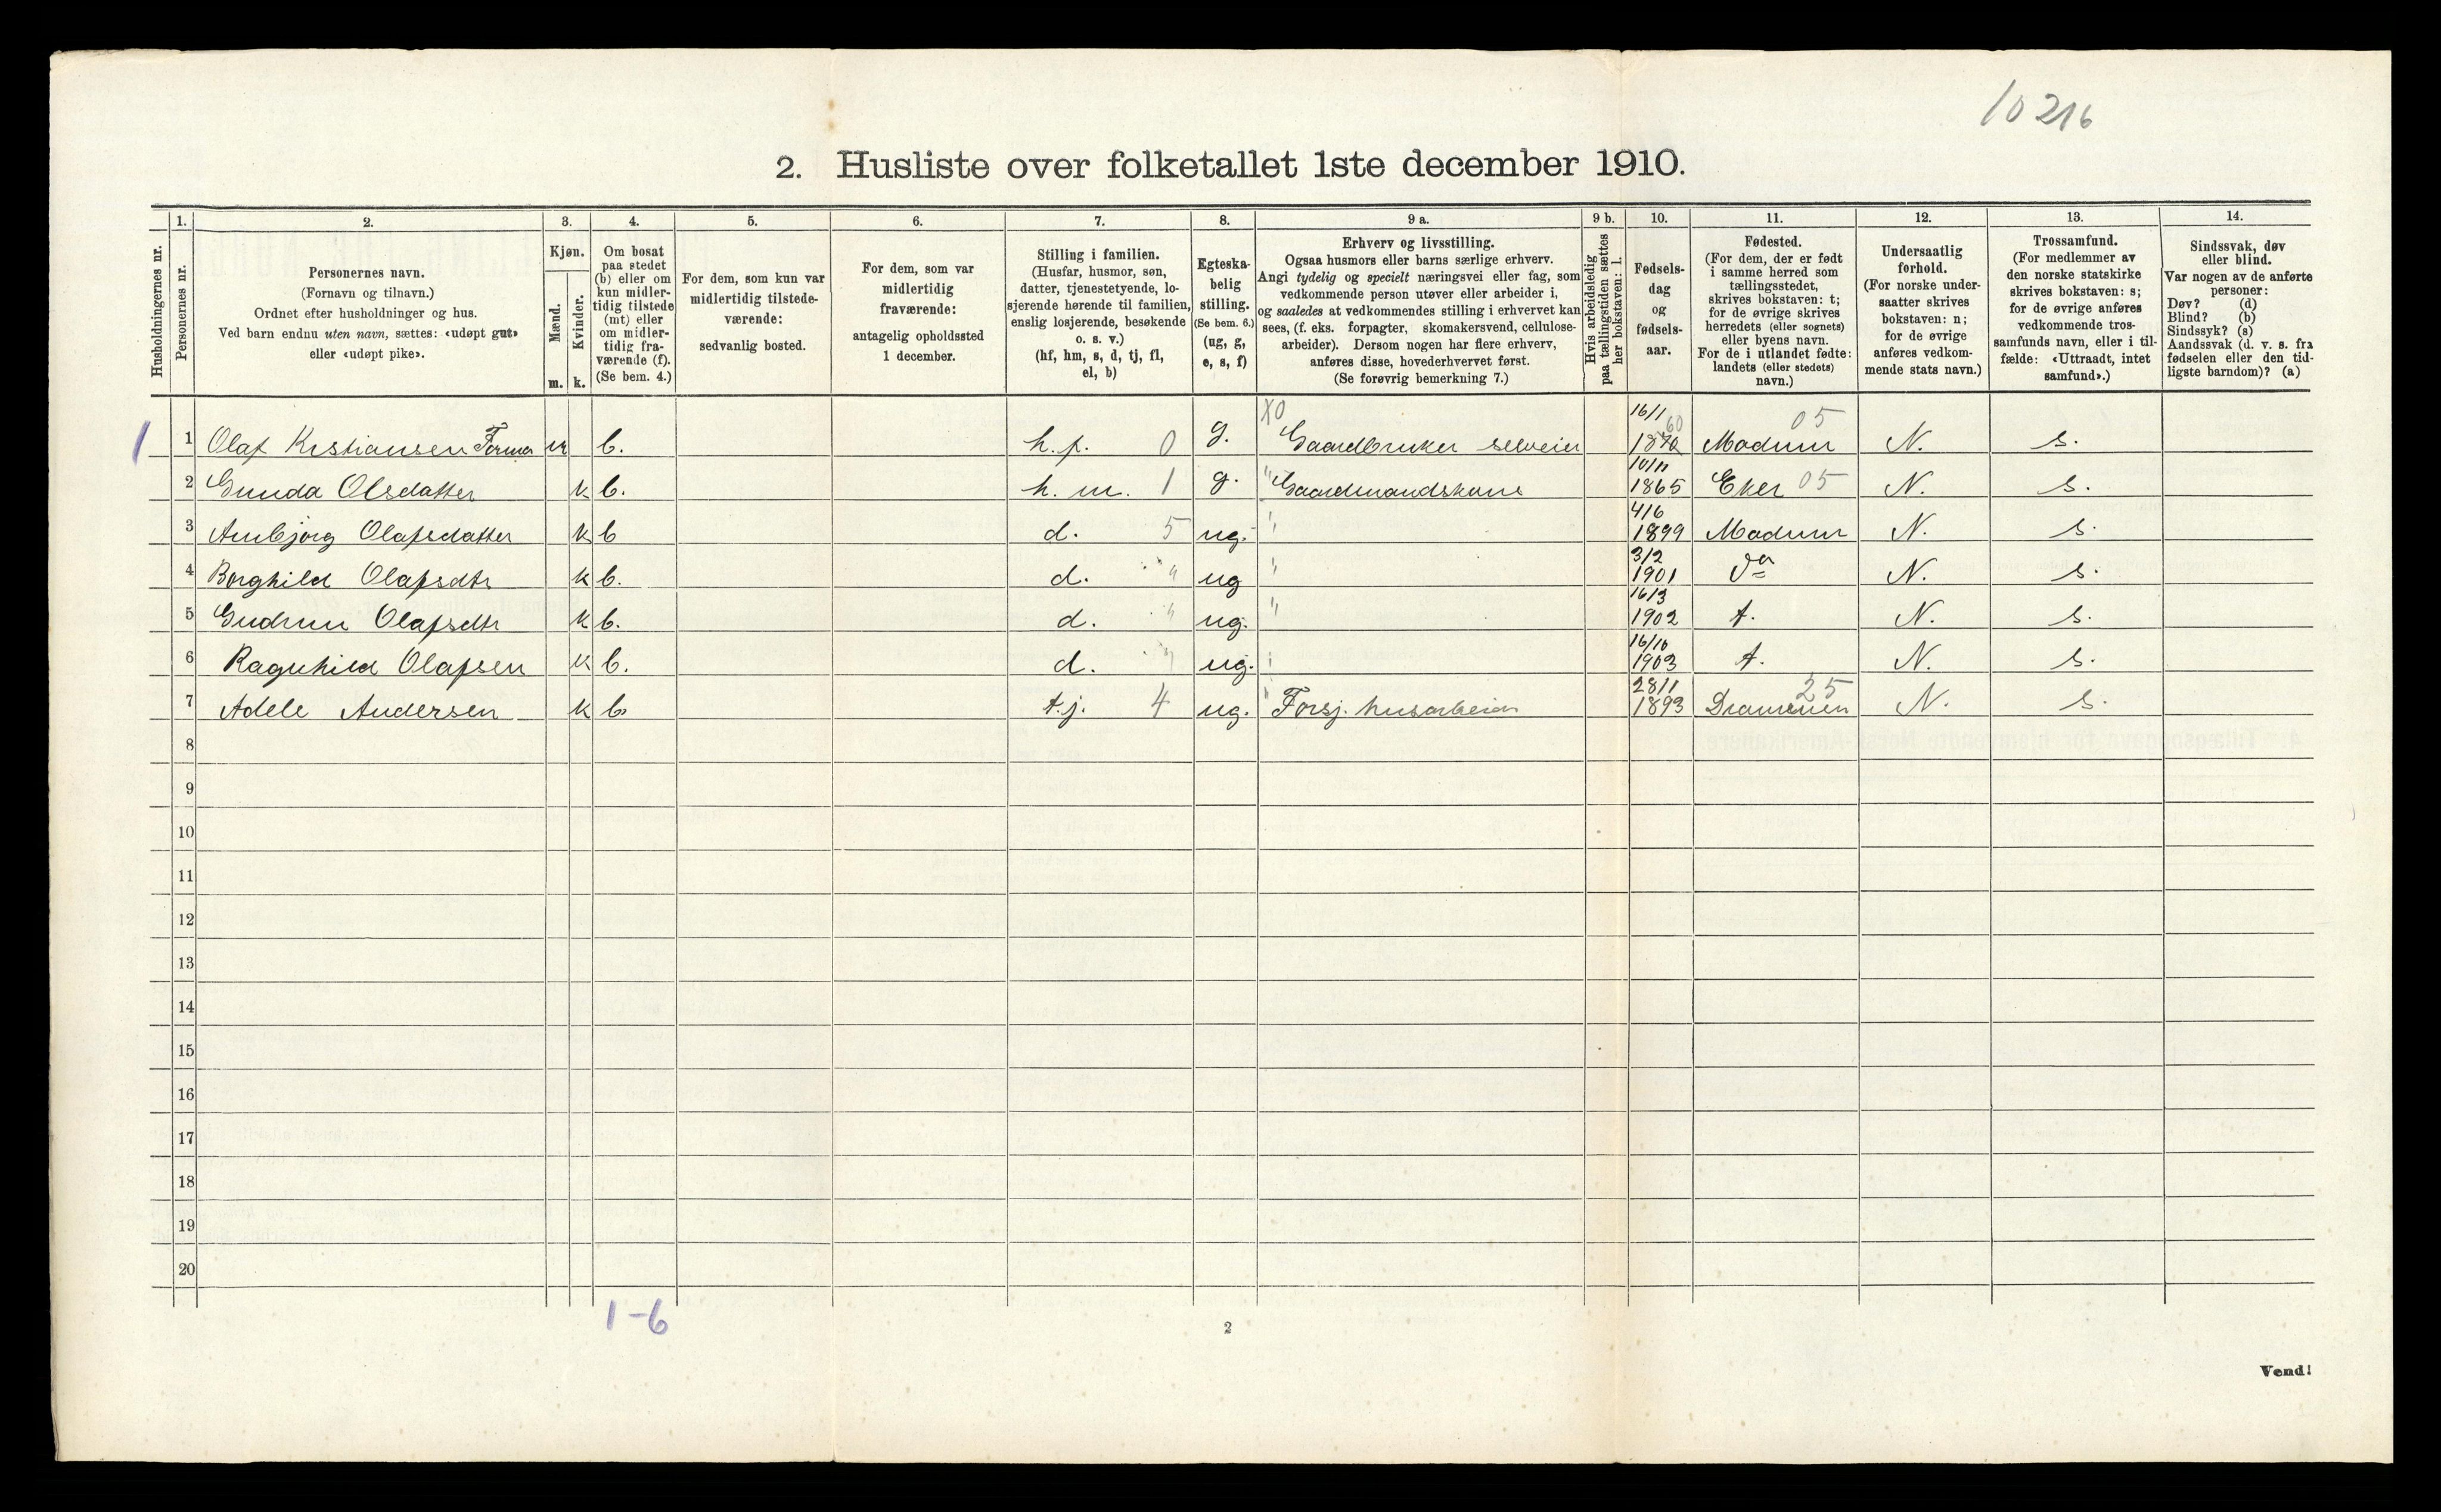 10216
2. Husliste over folketallet 1ste december 1910.
Husholdningernes nr.
1.
Personernes nr.
2.
Personernes navn.
(Fornavn og tilnavn.)
Ordnet efter husholdninger og hus.
Ved barn endnu uten navn, sættes: «udøpt gut»
eller «udøpt pike».
3.
Kjøn.
Mænd.
Kvinder.
m. k.
4.
Om bosat
paa stedet
(b) eller om
kun midler-
tidig tilstede
(mt) eller
om midler-
tidig fra-
værende (f).
(Se bem. 4.)
5.
For dem, som kun var
midlertidig tilstede-
værende:
sedvanlig bosted.
6.
For dem, som var
midlertidig
fraværende:
antagelig opholdssted
1 december.
7.
Stilling i familien.
(Husfar, husmor, søn,
datter, tjenestetyende, lo-
sjerende hørende til familien,
enslig losjerende, besøkende
o. s. v.)
(hf, hm, s, d, tj, fl,
el, b)
8.
Egteska-
belig
stilling.
(Se bem. 6.)
(ug, g,
e, s, f)
9 a.
Erhverv og livsstilling.
Ogsaa husmors eller barns særlige erhverv.
Angi tydelig og specielt næringsvei eller fag, som
vedkommende person utøver eller arbeider i,
og saaledes at vedkommendes stilling i erhvervet kan
sees, (f. eks. forpagter, skomakersvend, cellulose-
arbeider). Dersom nogen har flere erhverv,
anføres disse, hovederhvervet først.
(Se forøvrig bemerkning 7.)
9 b.
Hvis arbeidsledig
paa tællingstiden sættes
her bokstaven: l.
10.
Fødsels-
dag
og
fødsels-
aar.
11.
Fødested.
(For dem, der er født
i samme herred som
tællingsstedet,
skrives bokstaven: t;
for de øvrige skrives
herredets (eller sognets)
eller byens navn.
For de i utlandet fødte:
landets (eller stedets)
navn.)
12.
Undersaatlig
forhold.
(For norske under-
saatter skrives
bokstaven: n;
for de øvrige
anføres vedkom-
mende stats navn.)
13.
Trossamfund.
(For medlemmer av
den norske statskirke
skrives bokstaven: s;
for de øvrige anføres
vedkommende tros-
samfunds navn, eller i til-
fælde: «Uttraadt, intet
samfund».)
14.
Sindssvak, døv
eller blind.
Var nogen av de anførte
personer:
Døv? (d)
Blind? (b)
Sindssyk? (s)
Aandssvak (d. v. s. fra
fødselen eller den tid-
ligste barndom)? (a)
1 1 Olaf Kristiansen m b. h.f. 0 g. X0 Gaardbruker selveier 16/1 60 Modum 05 N. s.
2 Gunda Olsdatter k b. h.m. 1 g. " Gaardmandskone 10/11 1865 Eker 05 N. s.
3 Ambjörg Olafsdatter k b d. 5 ug. " 4/6 1899 Modum N. s.
4 Borghild Olafsdtr k b. d. " ug " 3/2 1901 Do N. s.
5 Gudrun Olafsdtr k b. d. " ug. " 16/3 1902 t. N. s.
6 Ragnhild Olafsen k b. d. " ug. " 16/10 1903 t. N. s.
7 Adele Andersen k b t.j. 4 ug. " Forsj. husarbeide 28/1 1893 Drammen 25 N. s.
8
9
10
11
12
13
14
15
16
17
18
19
20
1-6
2
Vend!